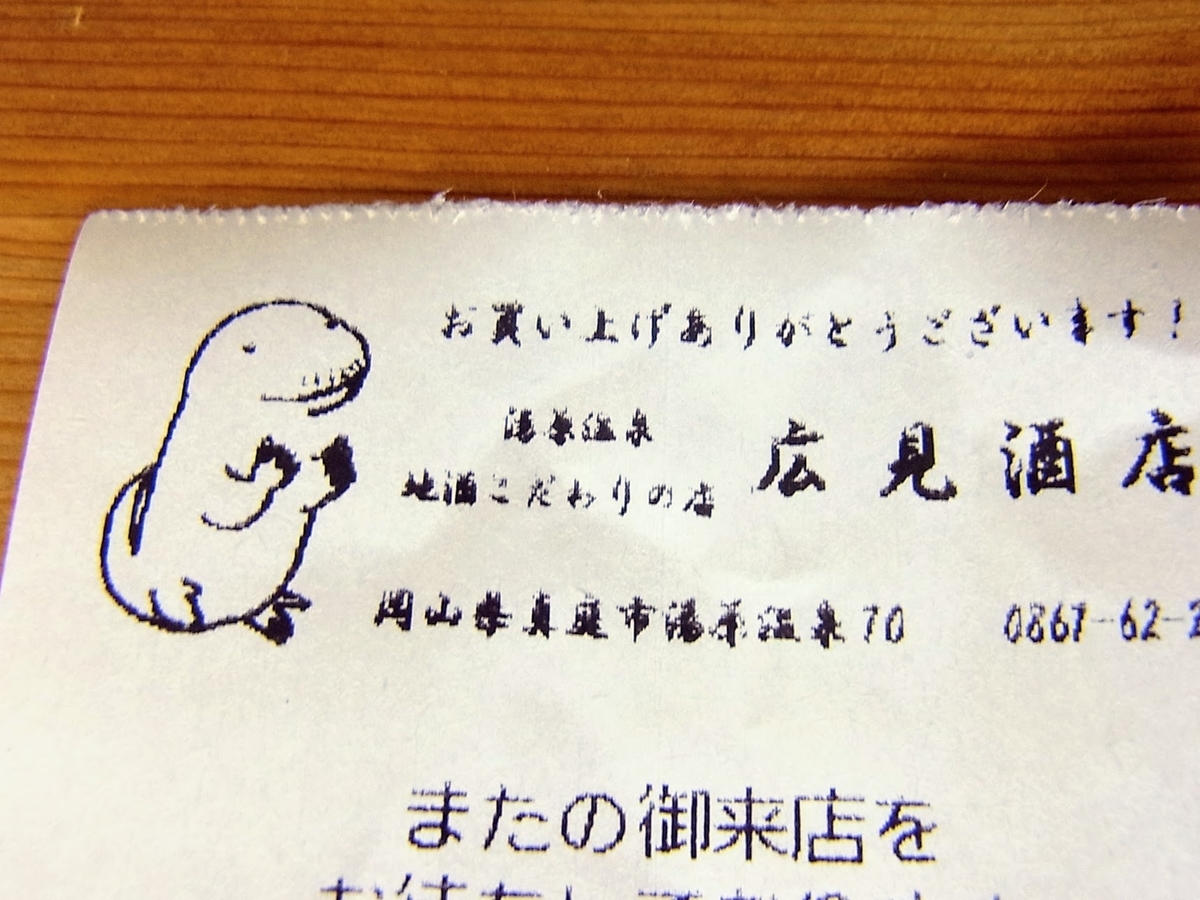 お買い上げありがとうございます！
湯原温泉
地酒こだわりの店
広見酒店
岡山県真庭市湯原温泉70 0867-62-
またの御来店を
お待ちして